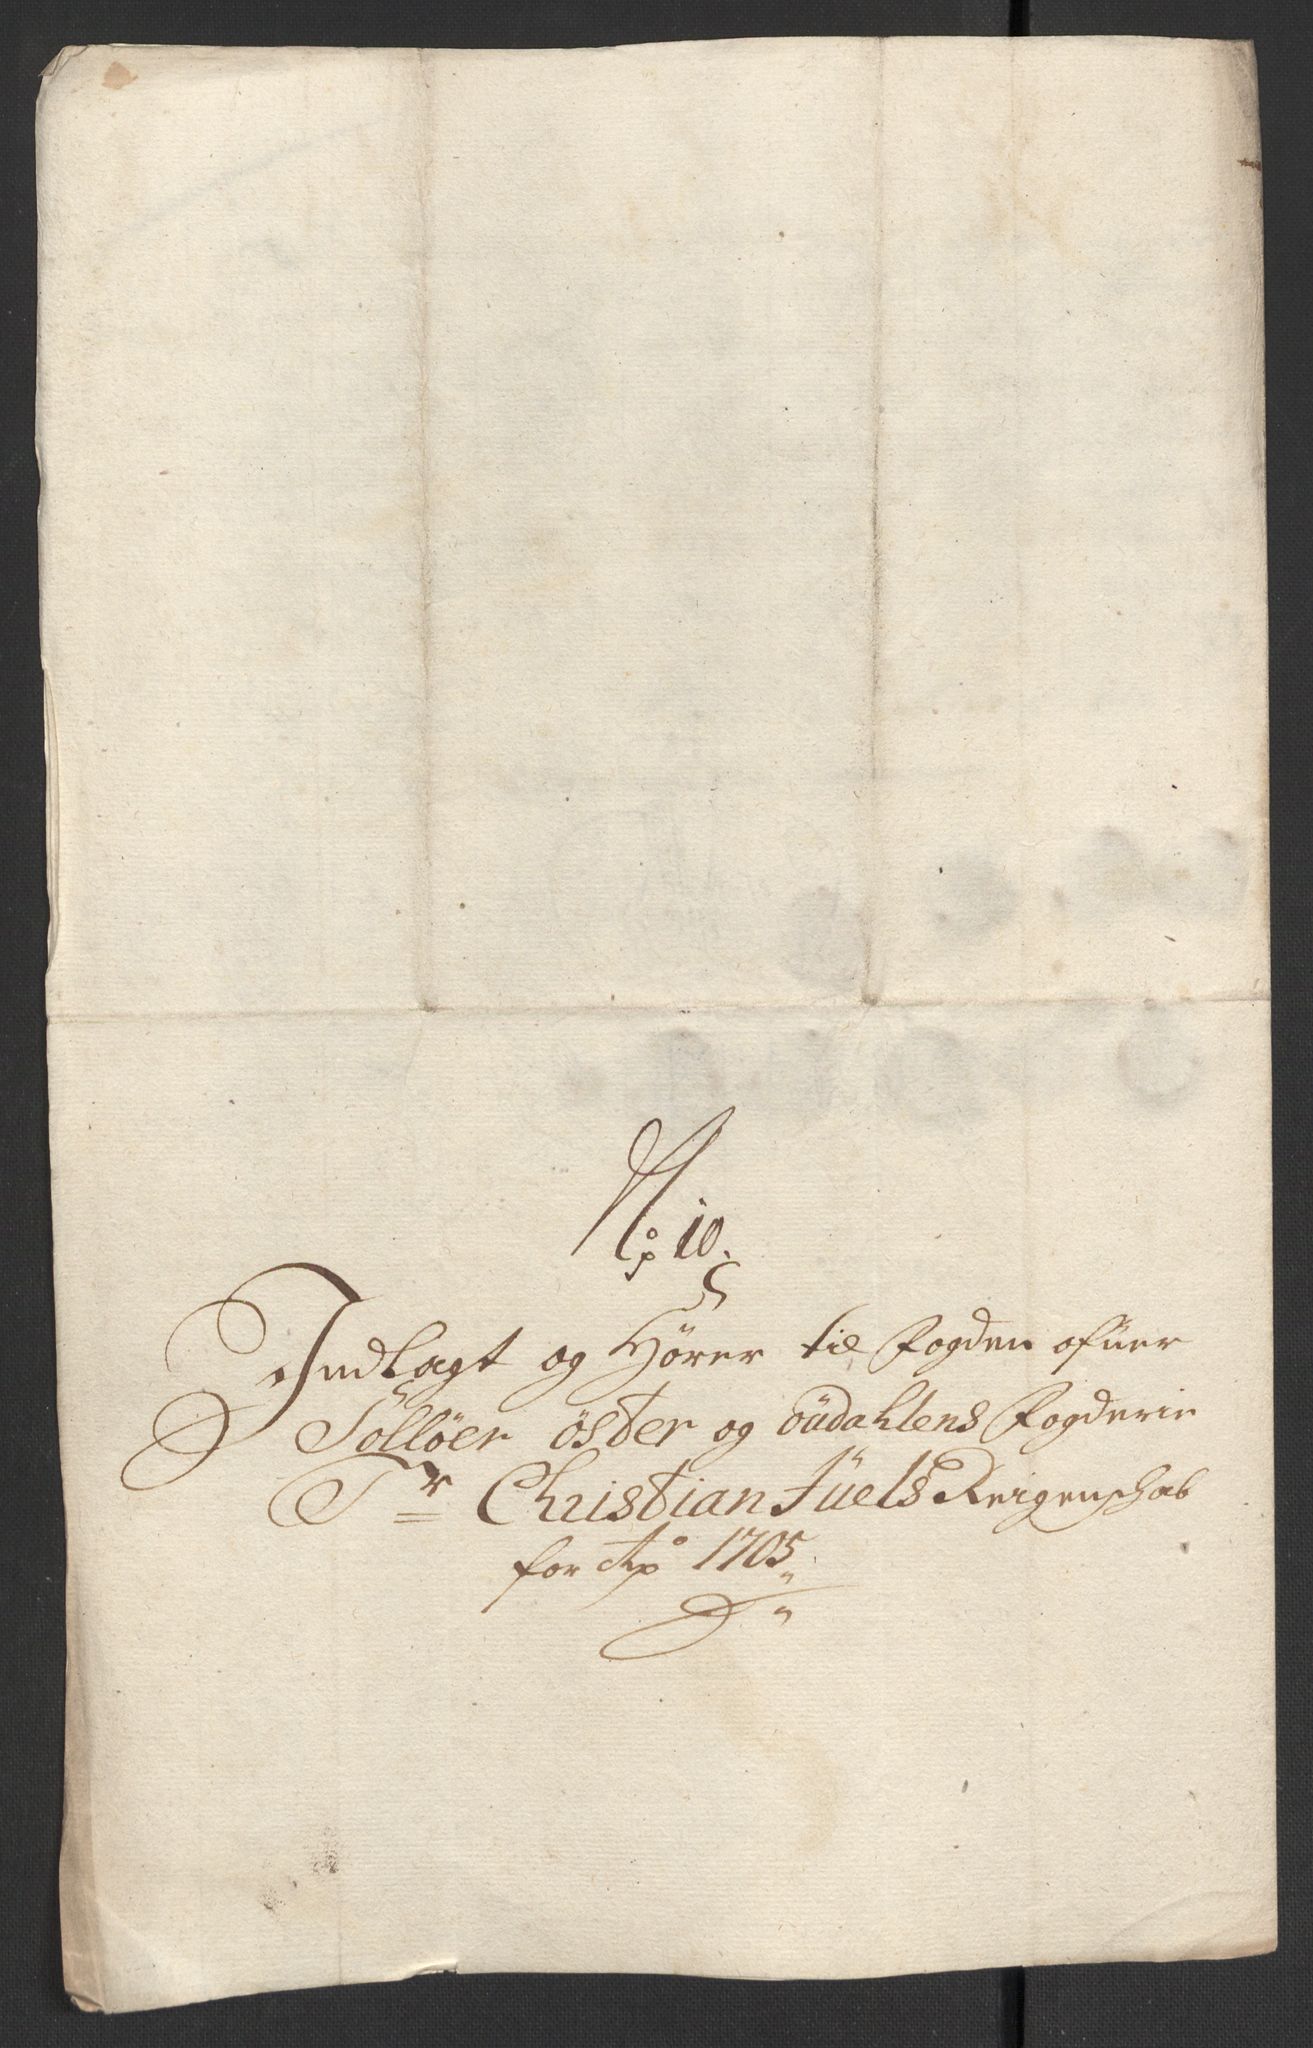 No 10.
Indlagt og Hörer til Fogden ofüer
Sollöer öster og oüdahlens Fogderie
Sr Christian Jüels Reigenschab
for Ao 1705